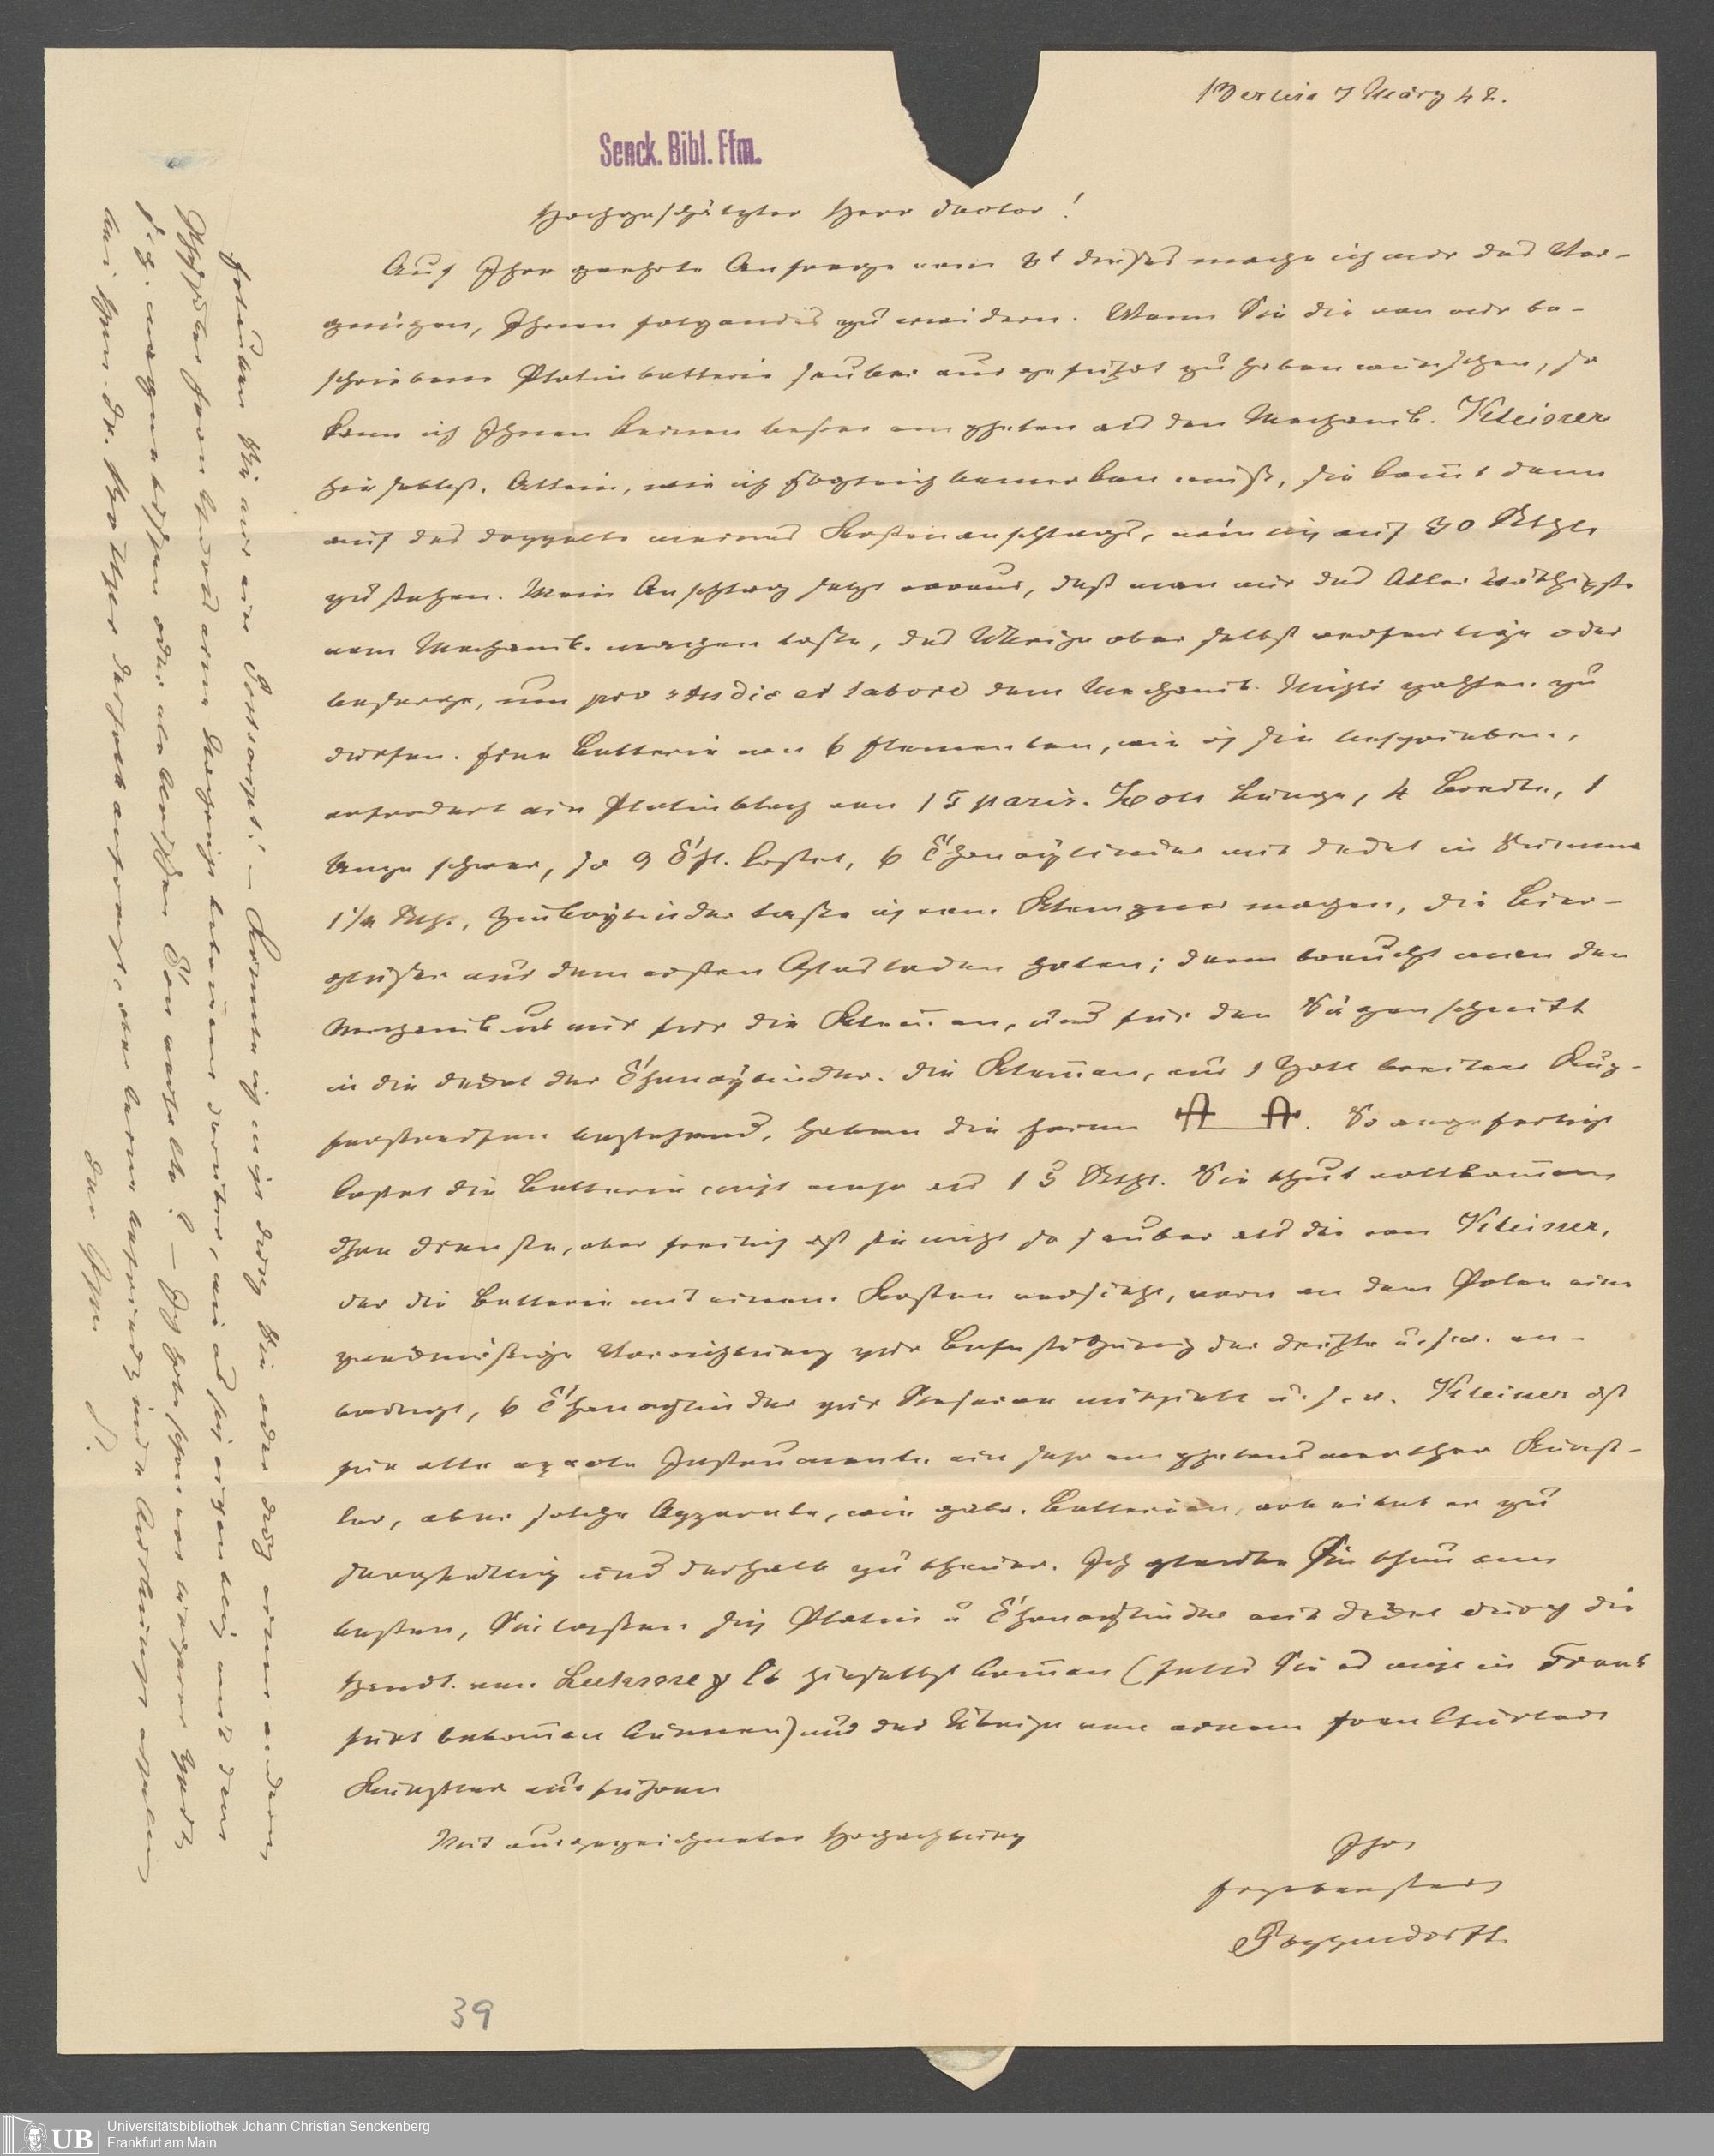 Berlin 7 März 42.
Senck. Bibl. Ffm.
Hochgeschätzter Herr Doctor!
Auf Ihre geehrte Anfrage vom 8t dieses mache ich mir das Ver-
gnügen, Ihnen folgendes zu erwidern. Wenn Sie die von mir be-
schriebene Platinbatterie sauber ausgeführt zu haben wünschen, so
kann ich Ihnen keinen besser empfehlen als den Mechanik. Kleiner
hieselbst. Allein, wie ich sogleich bemerken muß, sie kom̅t dann
auf das doppelte meines Kostenanschlags, nämlich auf 30 Rthlr
zu stehen. Mein Anschlag setzt voraus, daß man nur das Allernöthigste
vom Mechanik. machen lasse, das Übrige aber selbst verfertige oder
besorge, um pro studio et labore dem Mechanik. Nichts zahlen zu
dürfen. Eine Batterie von 6 Elementen, wie ich sie beschrieben,
erfordert ein Platinblech von 15 paris. Zoll Länge, 4 Breite, 1
Unze schwer, so 9 Thl. kostet, 6 Thoncylinder mit Deckel in Summa
1 1/2 Rthl., Zinkcylinder lasse ich vom Klempner machen, die Bier-
gläser aus dem ersten Glasladen holen; dann braucht man den
Mechanikus nur für die Klem̅en, und für den Sägenschnitt
in die Deckel der Thoncylinder. Die Klem̅en, aus 1 Zoll breiten Kup-
ferstreifen bestehend, haben die Form . So angefertigt
kostet die Batterie nicht mehr als 13 Rthl. Sie thut vollkom̅en
ihre Dienste, aber freilich ist sie nicht so sauber als die von Kleiner,
der die Batterie mit einem Kasten versieht, vorn an den Polen eine
zweckmäßige Vorrichtung zur Befestigung der Drähte u.s.w. an-
bringt, 6 Thoncylinder zur Reserve mitgiebt u.s.w. Kleiner ist
für alle exacte Instrumente ein sehr empfehlenswerther Künst-
ler, aber solche Apparate, wie galv. Batterien, arbeitet er zu
sorgfältig und deshalb zu theuer. Ich glaube Sie thun am
besten, Sie lassen sich Platin u Thoncylinder mit Deckel durch die
Handl. von hieselbst kom̅en (falls Sie es nicht in Frank
furt bekom̅en können) und das Übrige von einem Frankfurter
Künstler ausführen
Mit ausgezeichneter Hochachtung
Ihr
Ergebenster
Poggendorff
Erlauben Sie mir ein Postscript! – Könnte ich nicht durch Sie oder durch einen andern
fig. magnetischen oder elektrischen Ton
bei Hrn. Dr.
Der Ihre P.
39
UB
Universitätsbibliothek Johann Christian Senckenberg
Frankfurt am Main